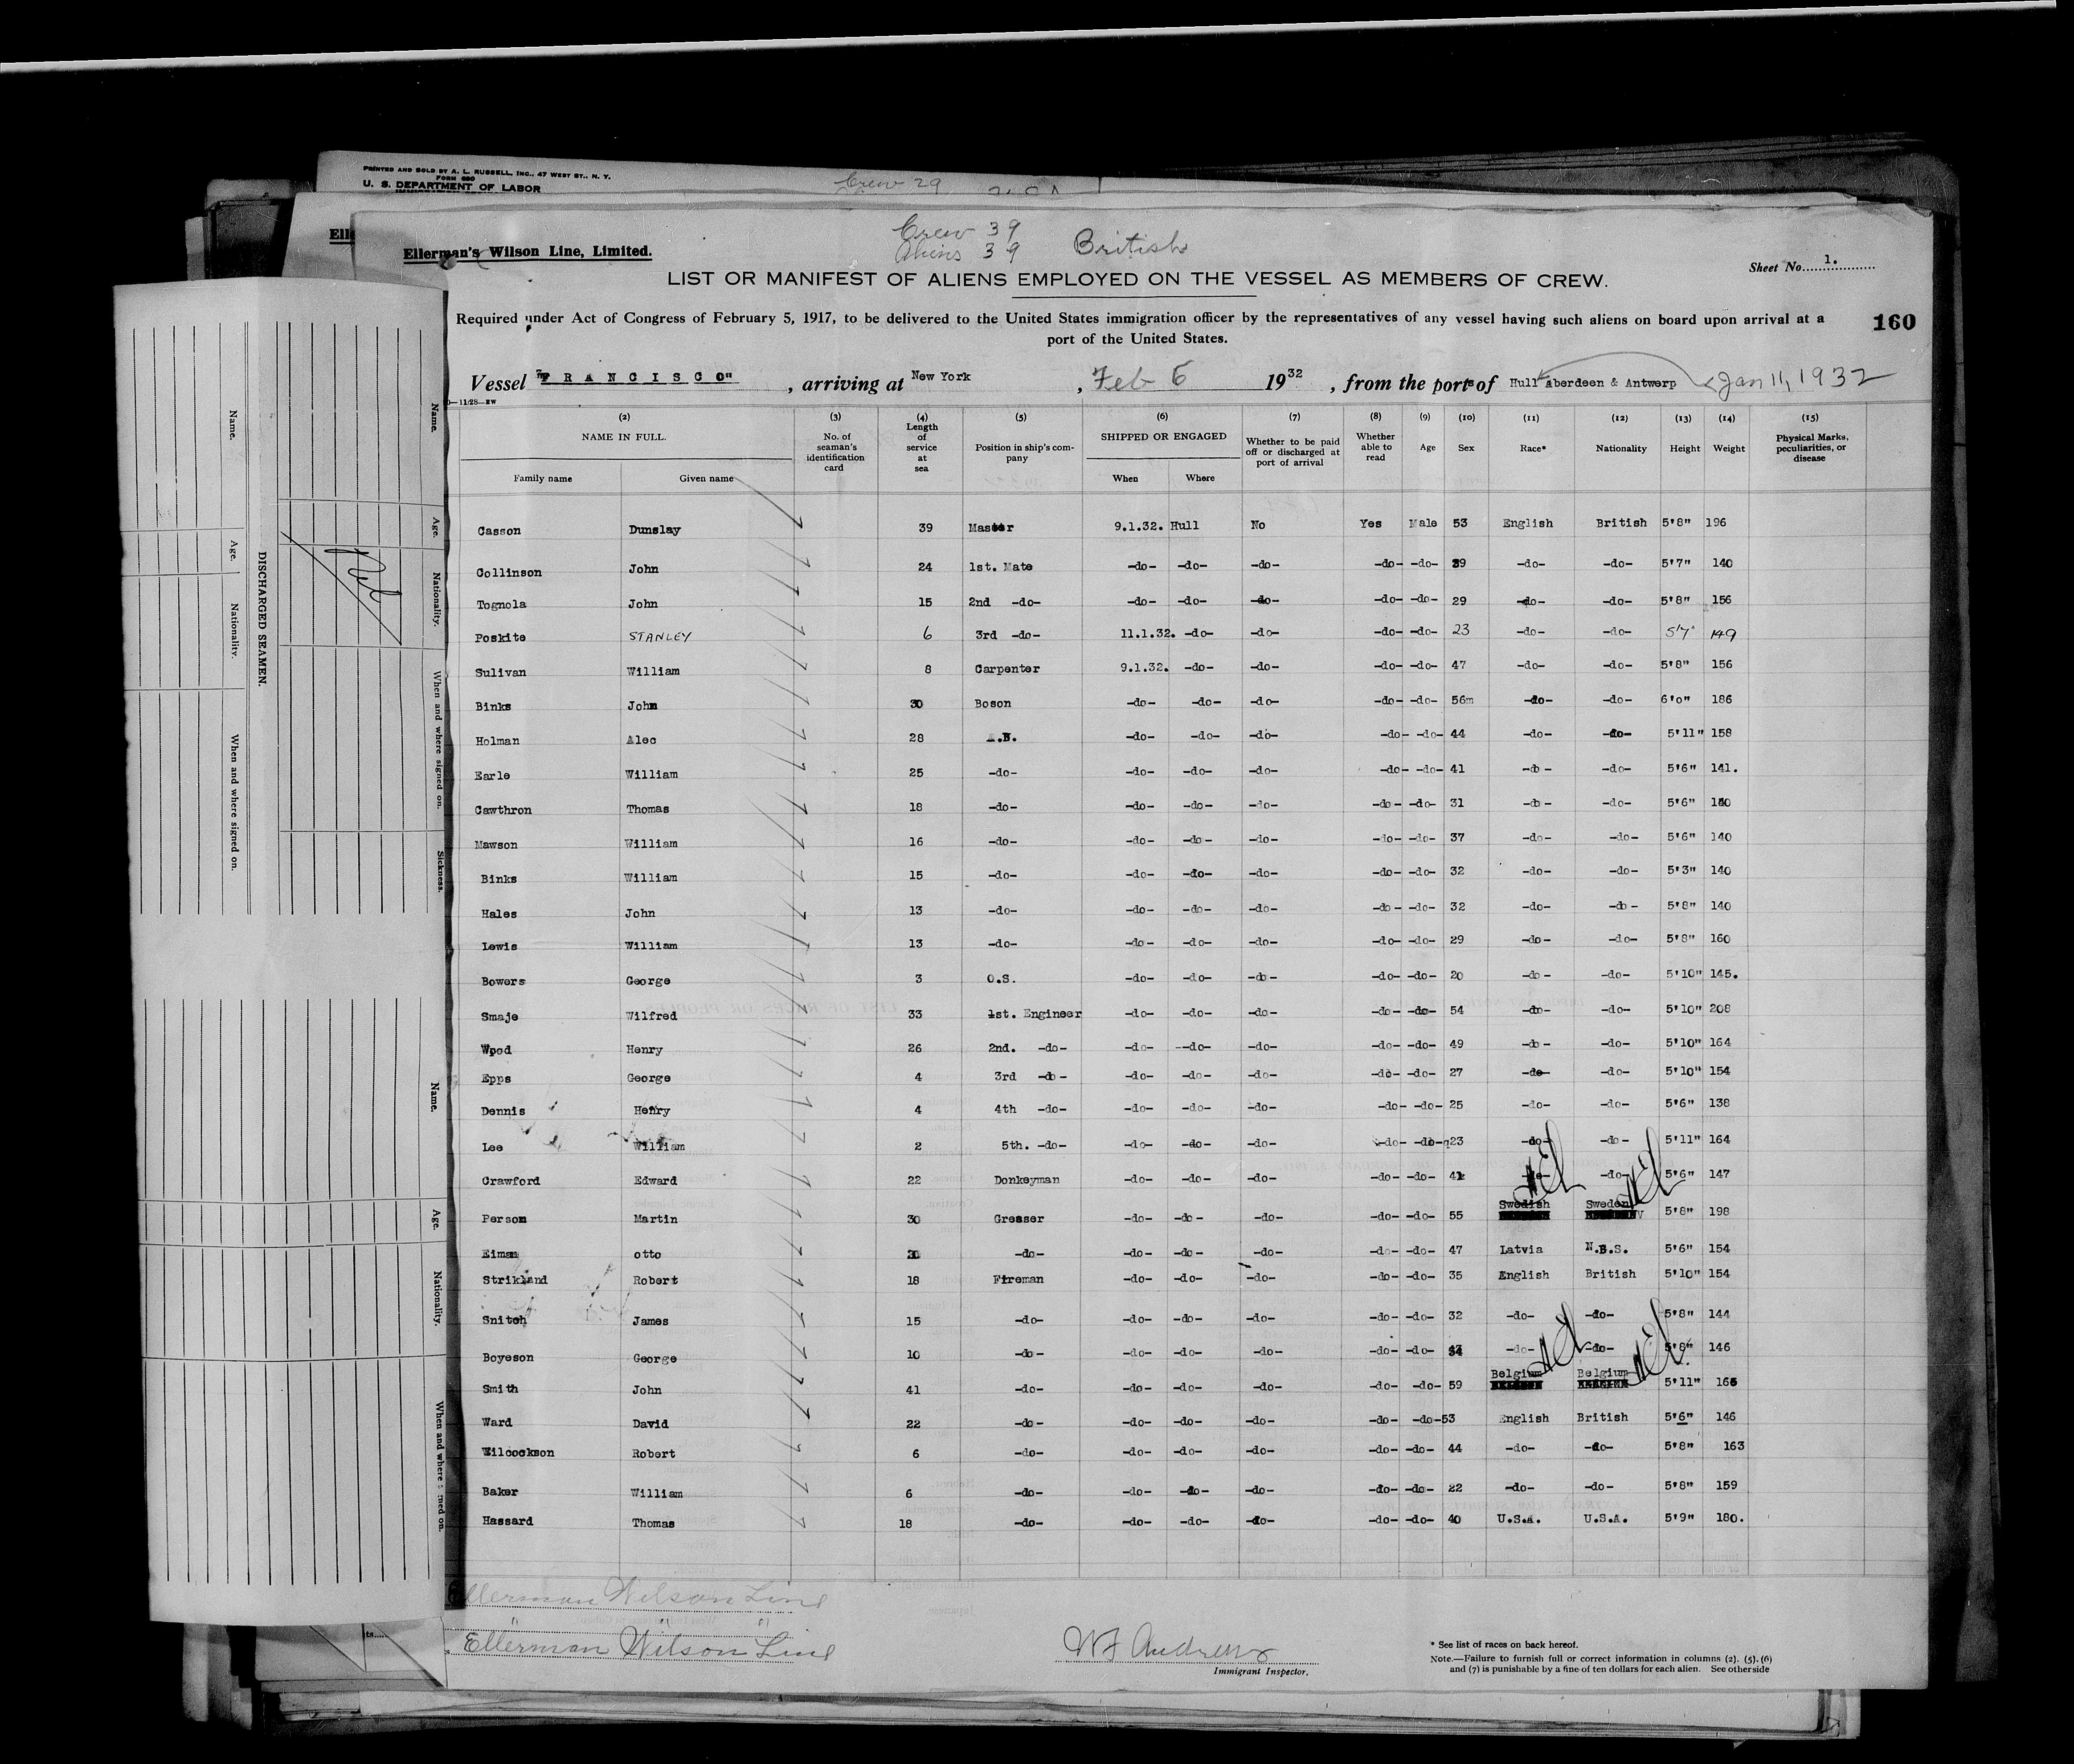 PRINTED AND SOLD BY A. L. RUSSELL, INC., 47 WEST ST., N. Y.
FORM 680
U. S. DEPARTMENT OF LABOR
Crew 29
Ell
Ellerman's Wilson Line, Limited.
Crew 39
Aliens 39
British
Sheet No. 1.
LIST OR MANIFEST OF ALIENS EMPLOYED ON THE VESSEL AS MEMBERS OF CREW.
Required under Act of Congress of February 5, 1917, to be delivered to the United States immigration officer by the representatives of any vessel having such aliens on board upon arrival at a
port of the United States.
160
Vessel "FRANCISCO" , arriving at New York , Feb 6 1932 , from the ports of Hull Aberdeen & Antwerp Jan 11, 1932
(2) (3) (4) (5) (6) (7) (8) (9) (10) (11) (12) (13) (14) (15)
NAME IN FULL. No. of seaman's identification card Length of service at sea Position in ship's company SHIPPED OR ENGAGED Whether to be paid off or discharged at port of arrival Whether able to read Age Sex Race* Nationality Height Weight Physical Marks, peculiarities, or disease
Family name Given name When Where
Casson Dunslay 39 Master 9.1.32. Hull No Yes Male 53 English British 5'8" 196
Collinson John 24 1st. Mate -do- -do- -do- -do- -do- 39 -do- -do- 5'7" 140
Tognola John 15 2nd -do- -do- -do- -do- -do- -do- 29 -do- -do- 5'8" 156
Poskite STANLEY 6 3rd -do- 11.1.32. -do- -do- -do- -do- 23 -do- -do- 5'7" 149
Sulivan William 8 Carpenter 9.1.32. -do- -do- -do- -do- 47 -do- -do- 5'8" 156
Binks John 30 Boson -do- -do- -do- -do- -do- 56m -do- -do- 6'0" 186
Holman Alec 28 A.B. -do- -do- -do- -do- -do- 44 -do- -do- 5'11" 158
Earle William 25 -do- -do- -do- -do- -do- -do- 41 -do- -do- 5'6" 141.
Cawthron Thomas 18 -do- -do- -do- -do- -do- -do- 31 -do- -do- 5'6"
Mawson William 16 -do- -do- -do- -do- -do- -do- 37 -do- -do- 5'6" 140
Binks William 15 -do- -do- -do- -do- -do- -do- 32 -do- -do- 5'3" 140
Hales John 13 -do- -do- -do- -do- -do- -do- 32 -do- -do- 5'8" 140
Lewis William 13 -do- -do- -do- -do- -do- -do- 29 -do- -do- 5'8" 160
Bowers George 3 O.S. -do- -do- -do- -do- -do- 20 -do- -do- 5'10" 145.
Smaje Wilfred 33 1st. Engineer -do- -do- -do- -do- -do- 54 -do- -do- 5'10" 208
Wood Henry 26 2nd. -do- -do- -do- -do- -do- -do- 49 -do- -do- 5'10" 164
Epps George 4 3rd -do- -do- -do- -do- -do- -do- 27 -do- -do- 5'10" 154
Dennis Henry 4 4th -do- -do- -do- -do- -do- -do- 25 -do- -do- 5'6" 138
Lee William 2 5th. -do- -do- -do- -do- -do- -do- 23 -do- -do- 5'11" 164
Crawford Edward 22 Donkeyman -do- -do- -do- -do- -do- -do- -do- 5'6" 147
Person Martin 30 Greaser -do- -do- -do- -do- -do- 55 Swedish Sweden 5'8" 198
Eiman otto -do- -do- -do- -do- -do- -do- 47 Latvia N.B.S. 5'6" 154
Strikland Robert 18 Fireman -do- -do- -do- -do- -do- 35 English British 5'10" 154
Snitch James 15 -do- -do- -do- -do- -do- -do- 32 -do- -do- 5'8" 144
Boyeson George 10 -do- -do- -do- -do- -do- -do- -do- -do- 5'8" 146
Smith John 41 -do- -do- -do- -do- -do- -do- 59 Belgium Belgium 5'11"
Ward David 22 -do- -do- -do- -do- -do- -do- 53 English British 5'6" 146
Wilcockson Robert 6 -do- -do- -do- -do- -do- -do- 44 -do- -do- 5'8" 163
Baker William 6 -do- -do- -do- -do- -do- -do- 22 -do- -do- 5'8" 159
Hassard Thomas 18 -do- -do- -do- -do- -do- -do- 40 U.S.A. U.S.A. 5'9" 180.
Ellerman Wilson Line
Ellerman Wilson Line
W Andrews
Immigrant Inspector.
* See list of races on back hereof.
Note.—Failure to furnish full or correct information in columns (2), (5), (6)
and (7) is punishable by a fine of ten dollars for each alien. See other side
DISCHARGED SEAMEN.
Name. Age. Nationality. When and where signed on.
Name. Age. Nationality. When and where signed on. Sickness.
Name. Age. Nationality. When and where signed on.